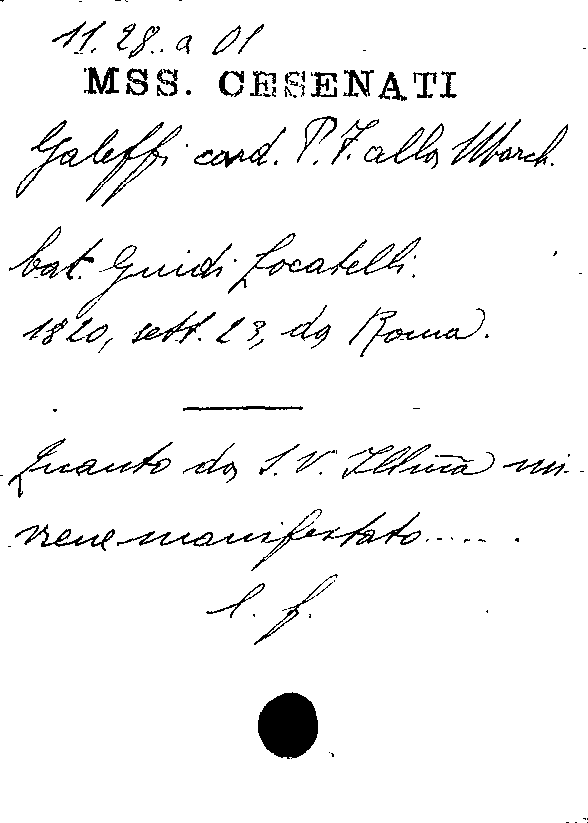 11. 28. a 01
MSS. CESENATI
Galeffi card. P. F. alla March.
bat. Guidi Locatelli.
1820, sett. 23, da Roma.
Quanto da S. V. Ill̃ma mi
viene manifestato.....
l. f.